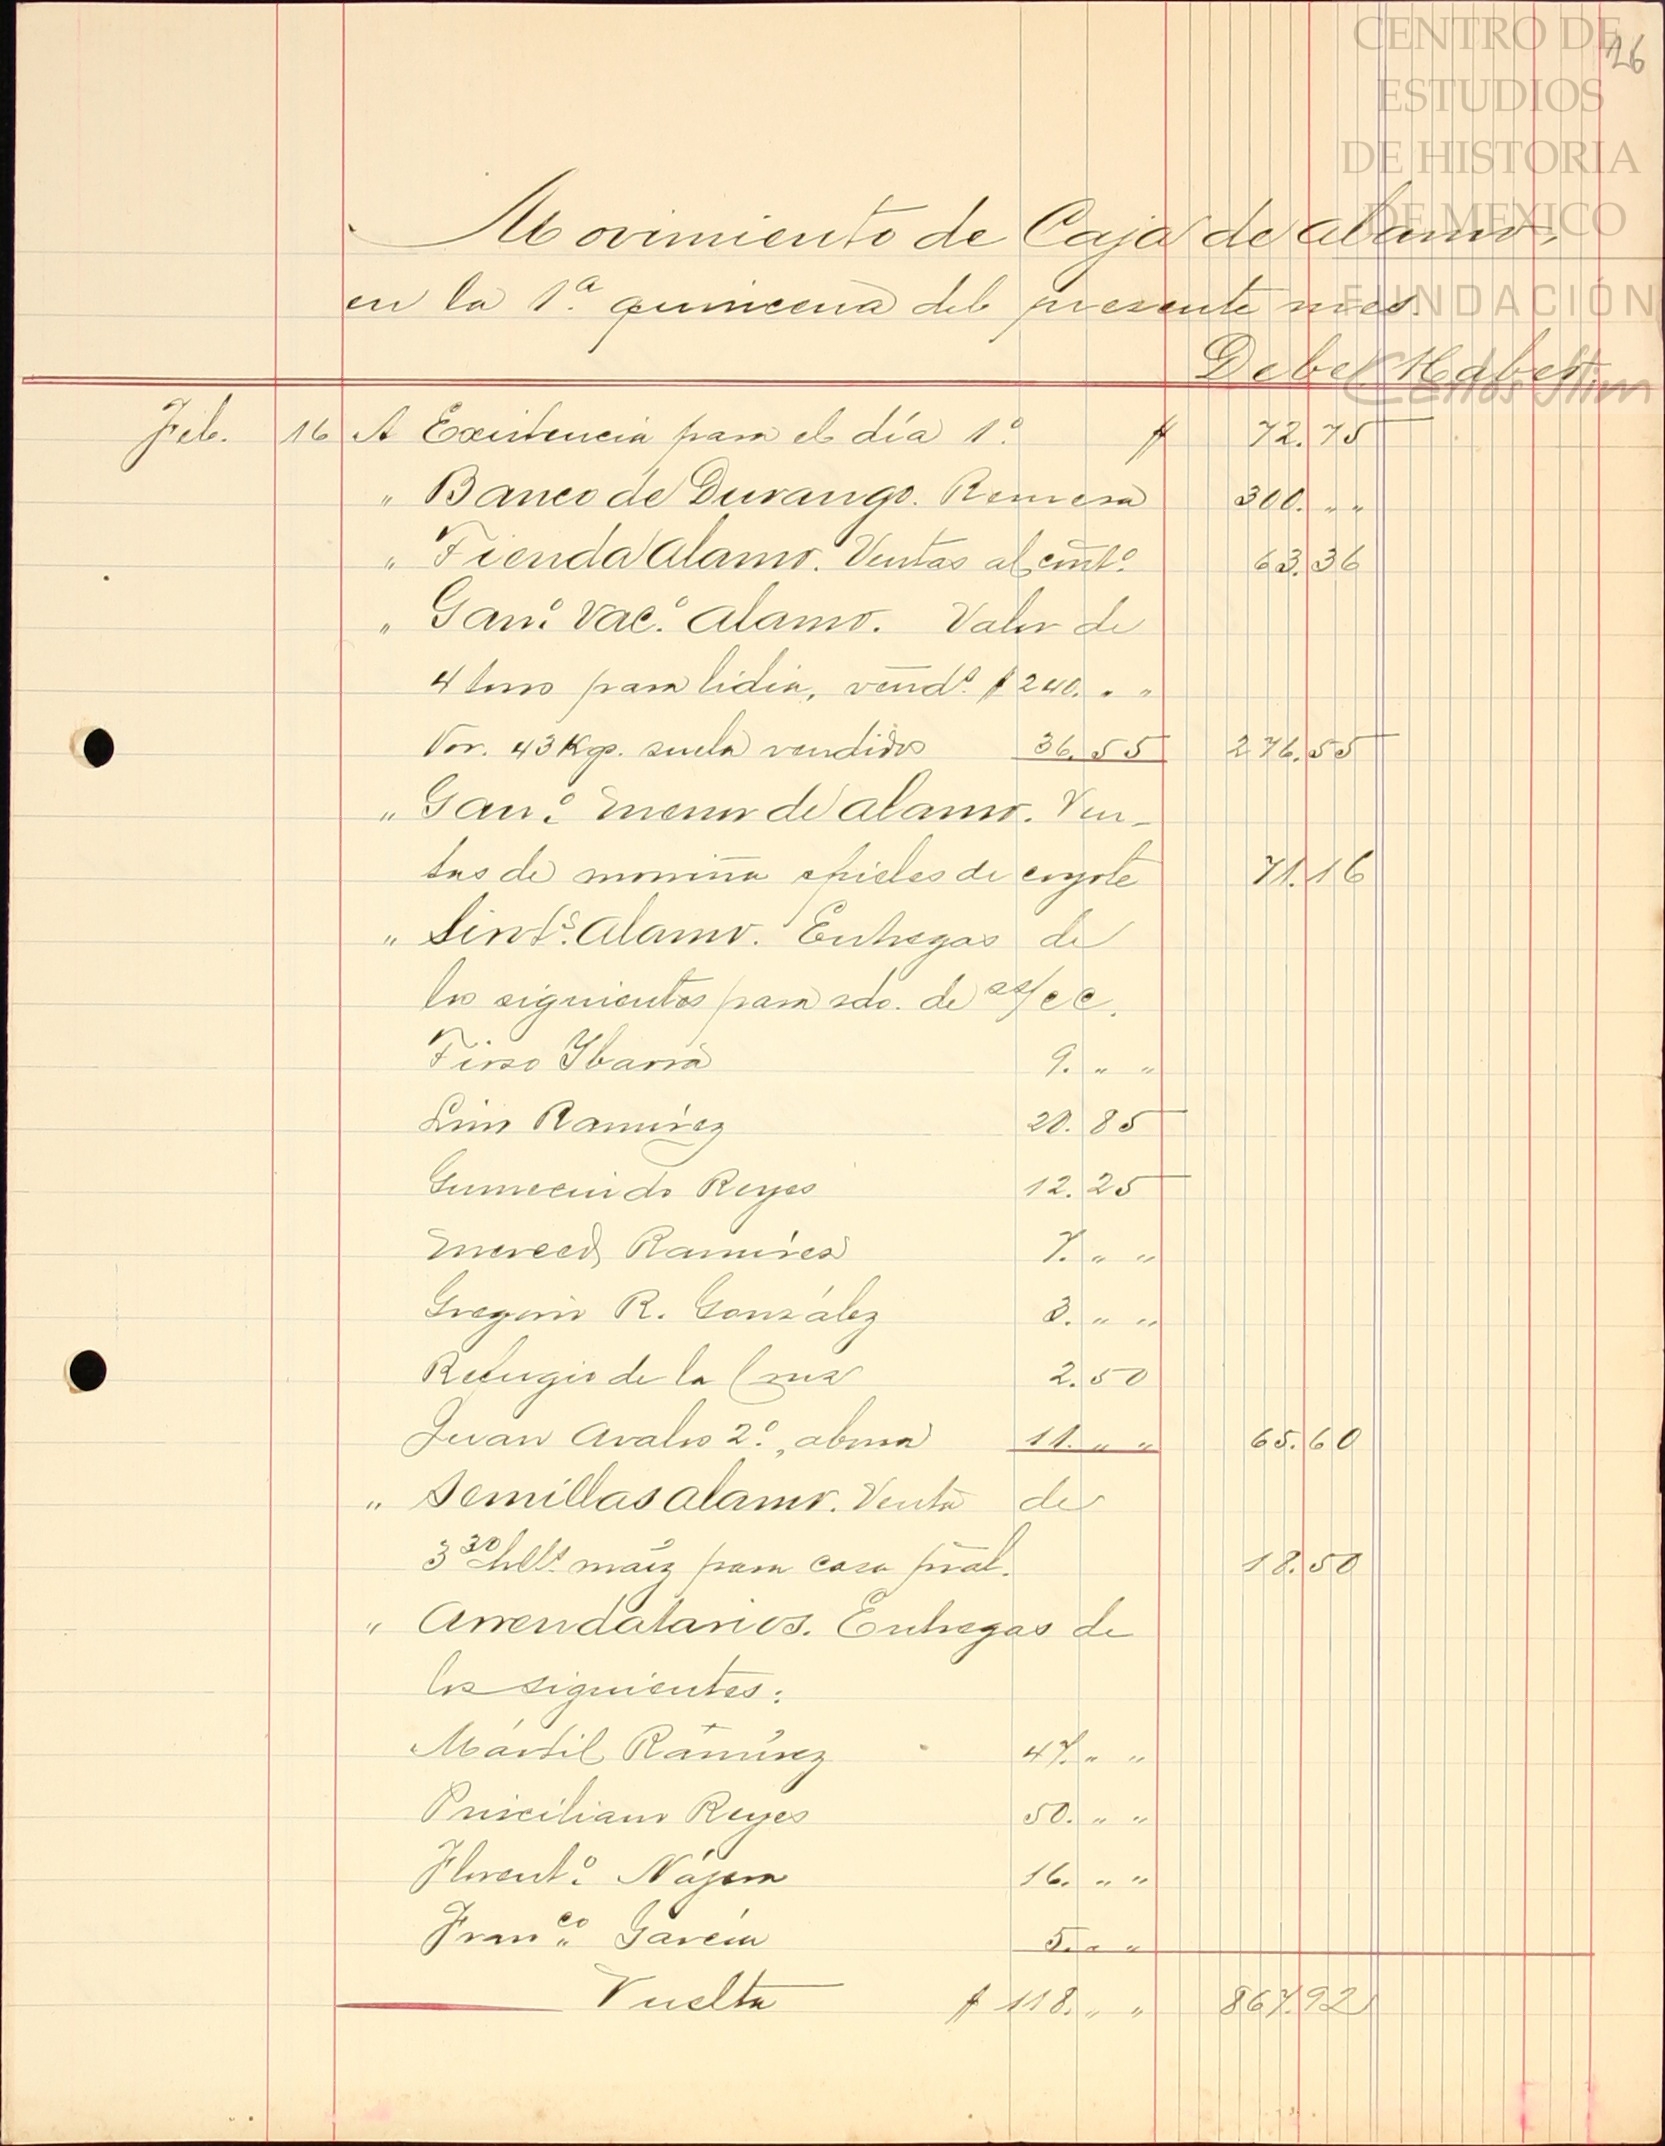 CENTRO DE
ESTUDIOS
DE HISTORIA
DE MEXICO
FUNDACIÓN
Carlos Slim
26
Movimiento de Caja de Alamo,
en la 1.ª quincena del presente mes.
Debe Haber
Feb. 16 A Existencia para el día 1.º $ 72.75
" Banco de Durango. Remesa 300. " "
" Tienda Alamo. Ventas al cont.º 63.36
" Gan.º Vac.º Alamo. Valor de
4 toros para lidia, vend.º $ 240. " "
Vor. 43 Kgs. suela vendidos 36.55 276.55
" Gan.º Menor de Alamo. Ven-
tas de morriña y pieles de coyote 71.16
" Sirvts. Alamo. Entregas de
los siguientes para sdo. de cc.
Tirso Ibarra 9. " "
Lino Ramírez 20.85
Gumecindo Reyes 12.25
Merced Ramires 7. " "
Gregorio R. González 3. " "
Refugio de la Cruz 2.50
Juan Avalos 2.º, abona 11. " " 65.60
" Semillas Alamo. Venta de
3 30 hlts. maíz para casa pral. 18.50
" Arrendatarios. Entregas de
los siguientes:
Ramírez 47. " "
Prisciliano Reyes 50. " "
Florent.º Nájera 16. " "
Fran.co García 5. " "
Vuelta $ 118. " " 867.92